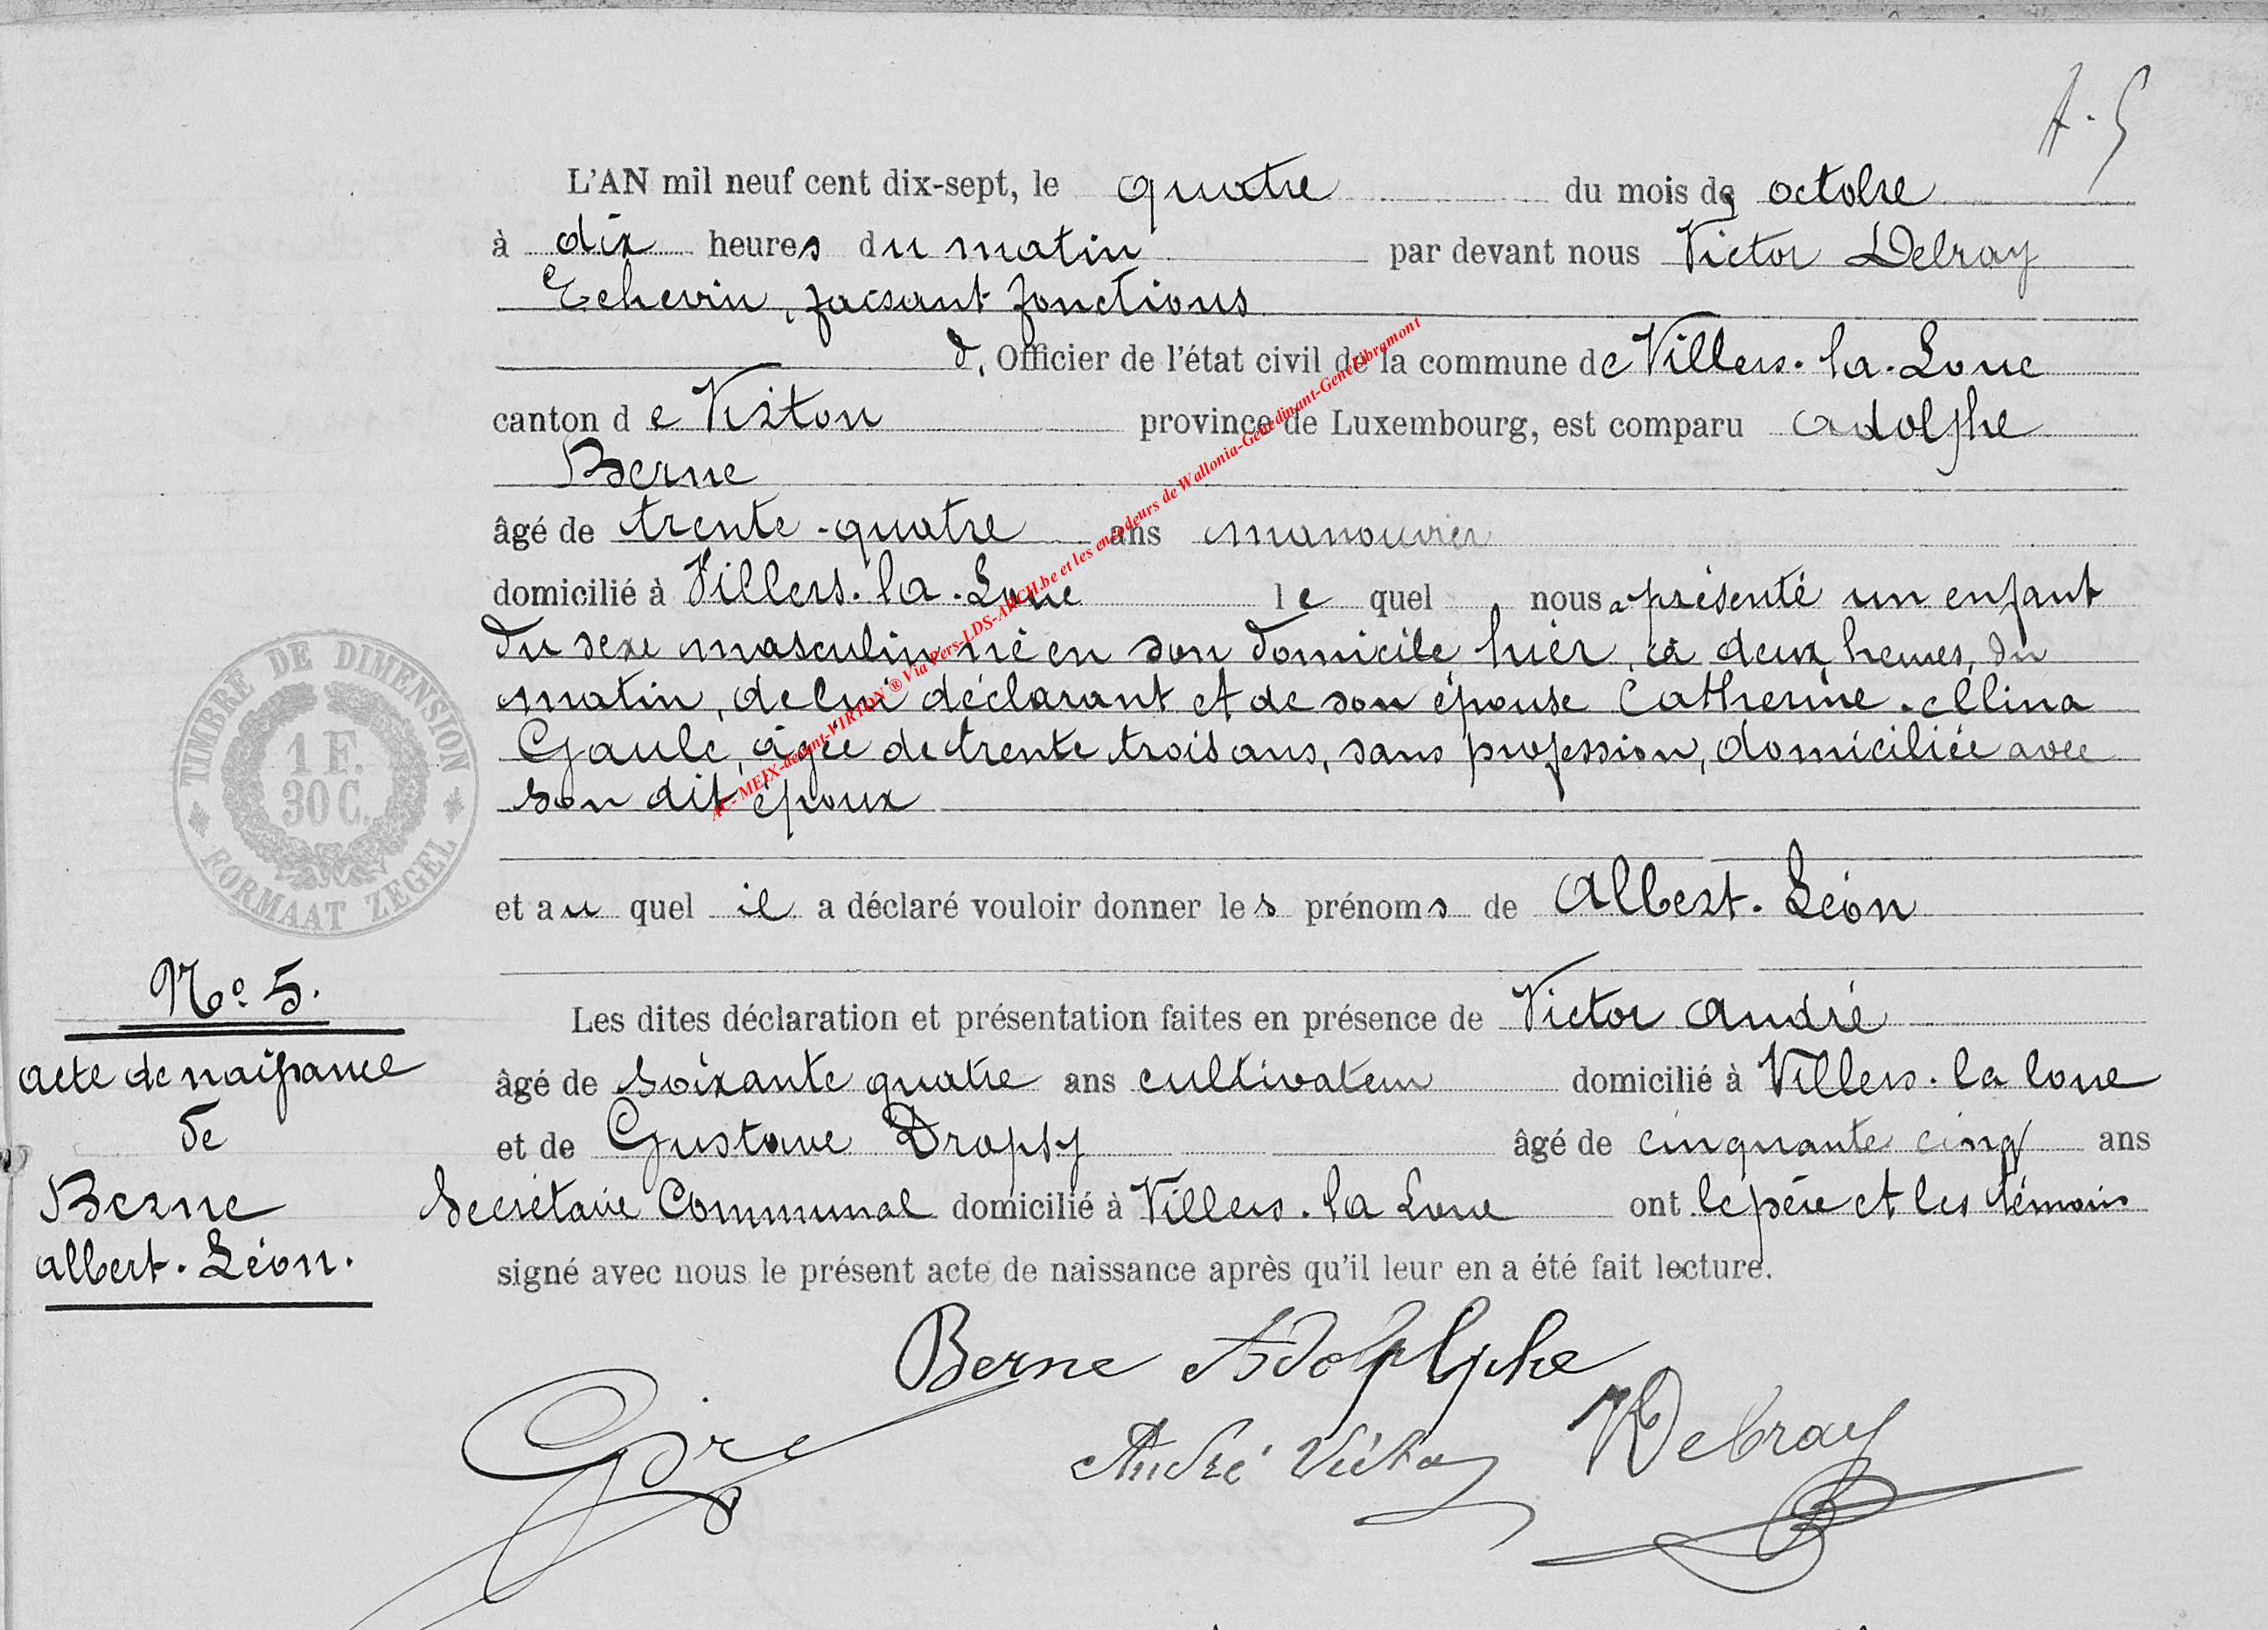 A. S
L'AN mil neuf cent dix-sept, le quatre du mois de octobre
à dix heures du matin par devant nous Victor Debray
Echevin, faisant fonctions
d, Officier de l'état civil de la commune de Villers-la-Loue
canton de Virton province de Luxembourg, est comparu Adolphe
Berne
âgé de trente-quatre ans manouvrier
domicilié à Villers-la-Loue lequel nous a présenté un enfant
du sexe masculin né en son domicile hier, à deux heures, du
matin, de lui déclarant et de son épouse Catherine-Elina
Gaule, âgée de trente trois ans, sans profession, domiciliée avec
son dit époux
et auquel il a déclaré vouloir donner les prénoms de Albert-Léon
Les dites déclaration et présentation faites en présence de Victor André
âgé de soixante quatre ans cultivateur domicilié à Villers-la loue
et de Gustave Dropsy âgé de cinquante cinq ans
Secrétaire Communal domicilié à Villers-la Loue ont le père et les témoins
signé avec nous le présent acte de naissance après qu'il leur en a été fait lecture.
TIMBRE DE DIMENSION
1 F.
30 C.
FORMAAT ZEGEL
No. 5.
acte de naissance
de
Berne
Albert-Léon.
Berne Adolphe
André Victor
VDebray
AC-MEIX-devant-VIRTON ® Via Pers-LDS-ARCH.be et les encodeurs de Wallonia-Genedinant-GeneLibramont